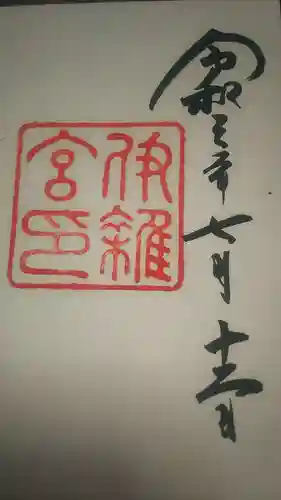 令和三年七月十三日
伊雜
宮印